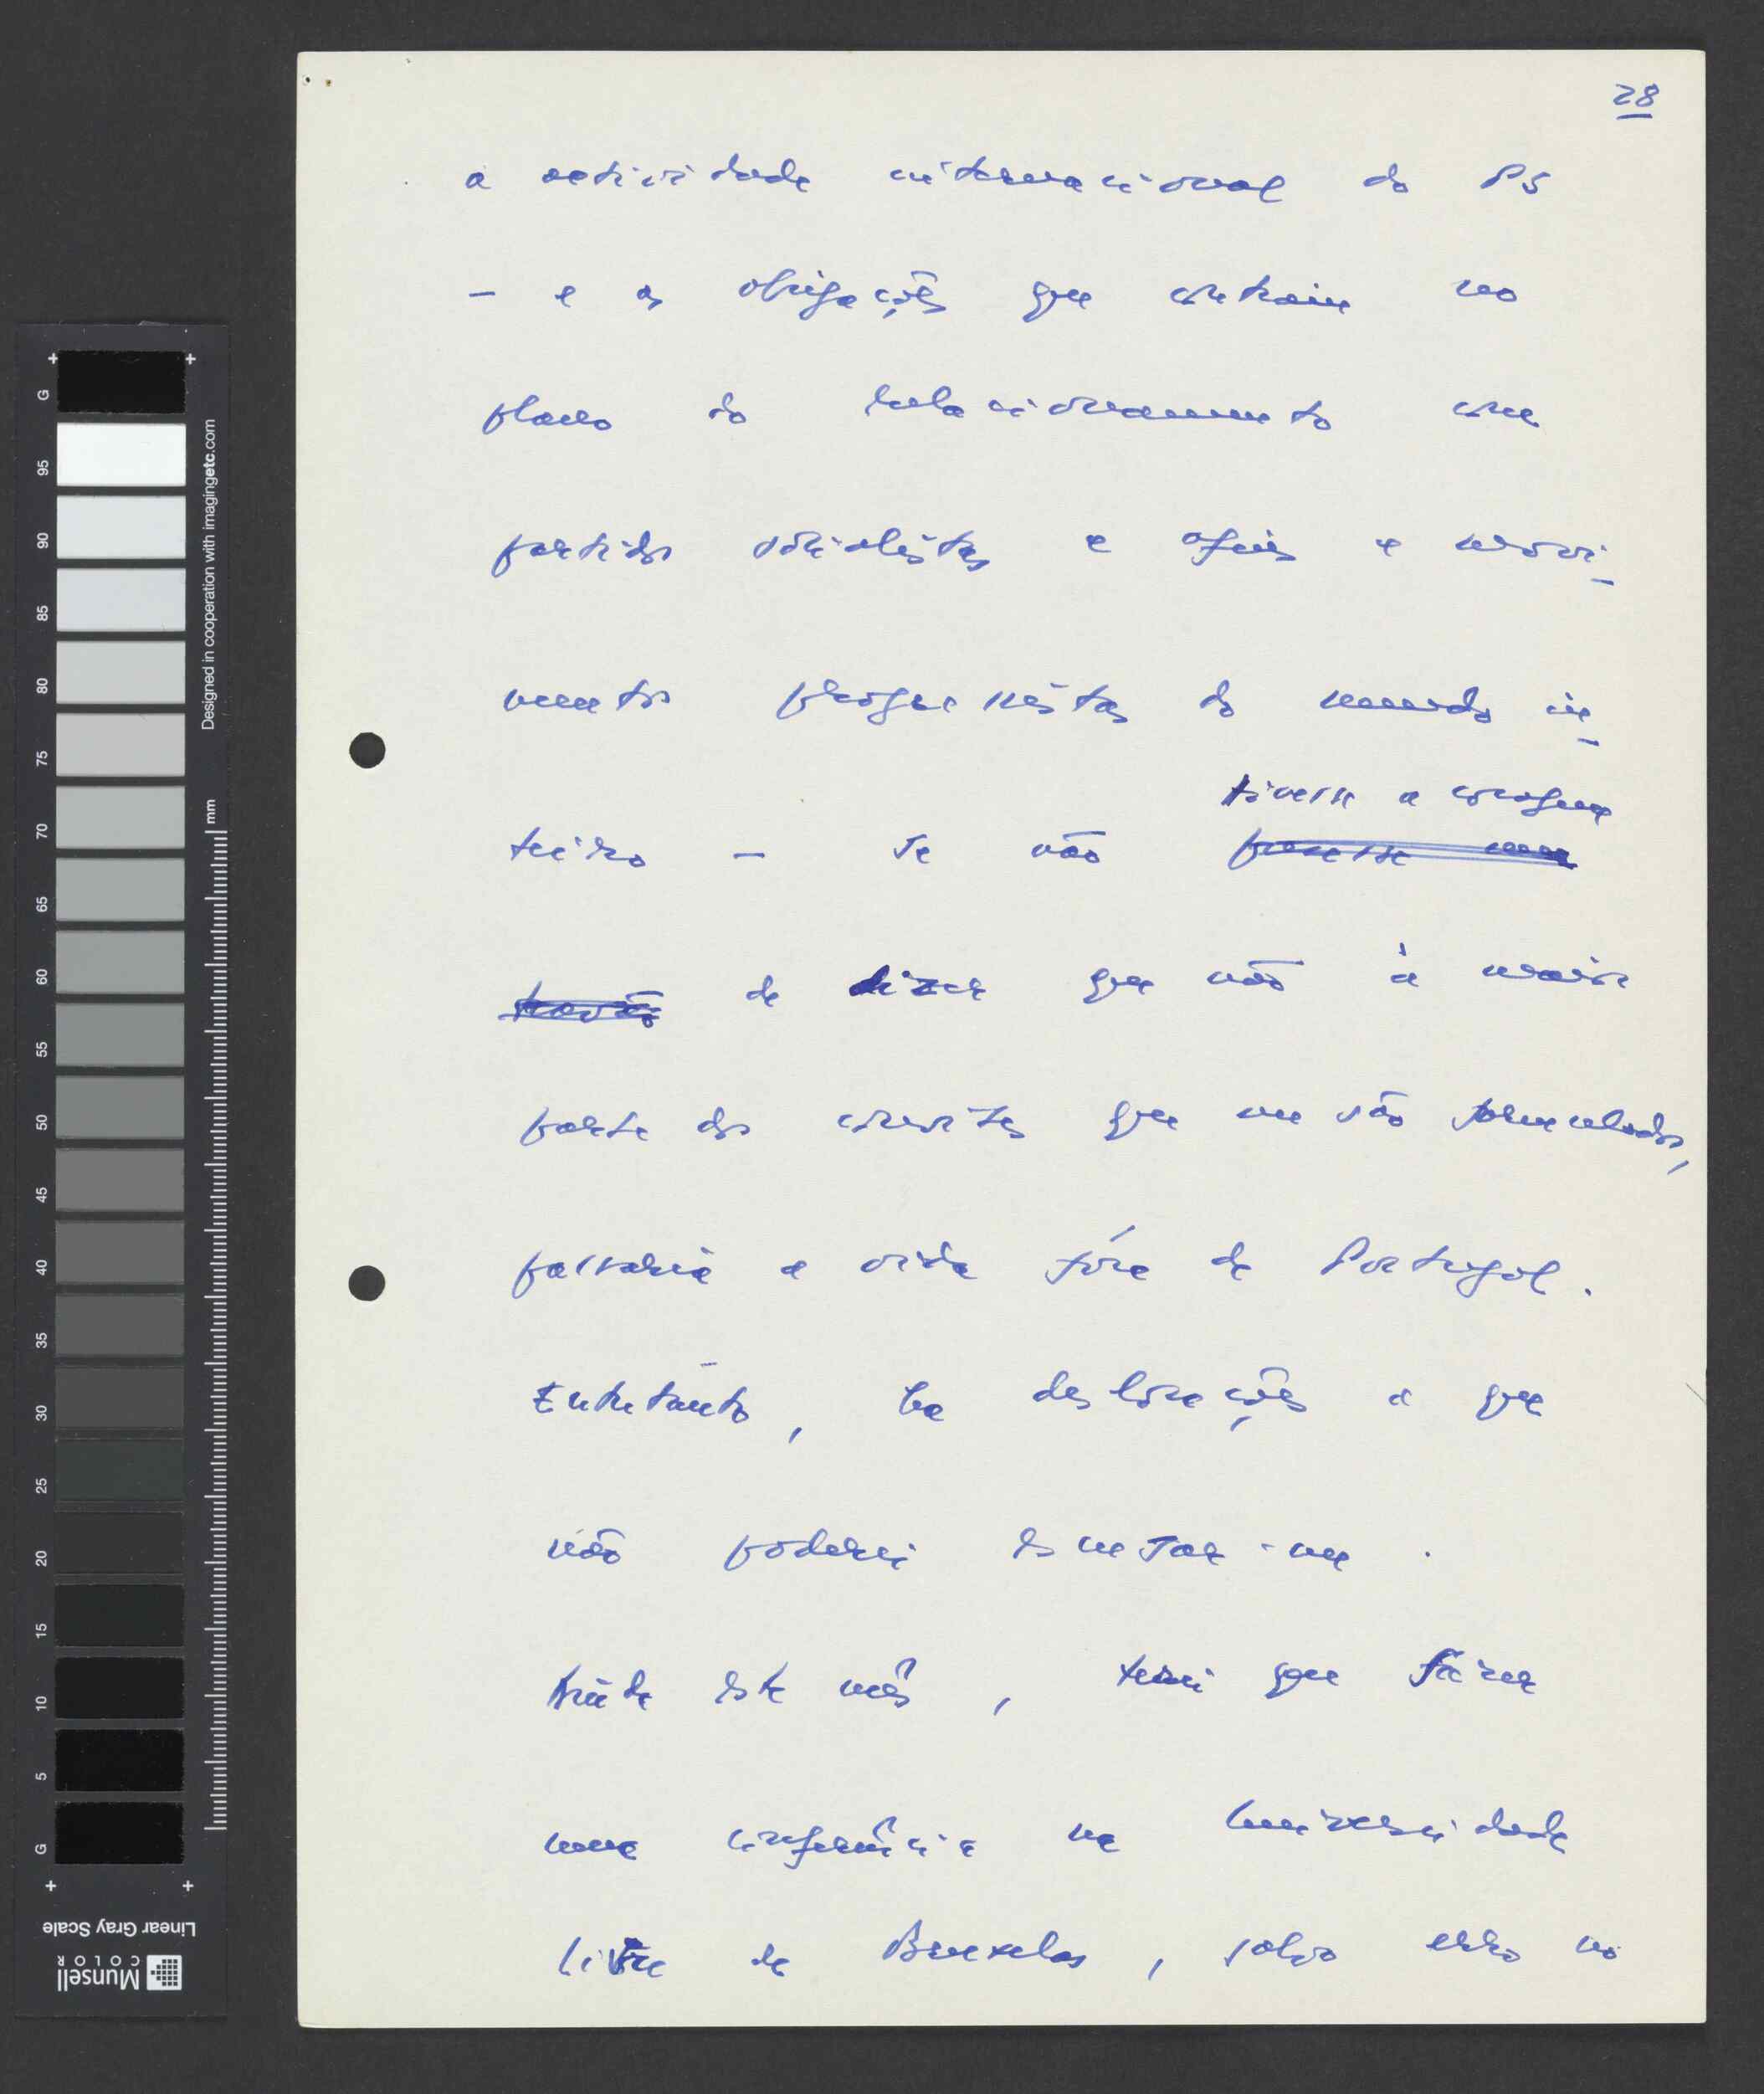 28
a actividade internacional do PS
- e as obrigações que contraiu no
plano do relacionamento com
partidos socialistas e afins e movi-
mentos progressistas do mundo in-
tivesse a coragem
teiro - se não pusesse um
travão de dizer que não à maior
parte dos convites que me são formulados,
passaria a vida fóra de Portugal.
Entretanto, ha deslocações a que
não poderei isentar-me.
Ainda este mês, terei que fazer
uma conferência na Universidade
Livre de Bruxelas, salvo erro no
G
95
90
85
80
75
70
65
60
55
50
45
40
35
30
25
20
15
10
5
G
Designed in cooperation with imagingetc.com
mm
Linear Gray Scale
Munsell
COLOR